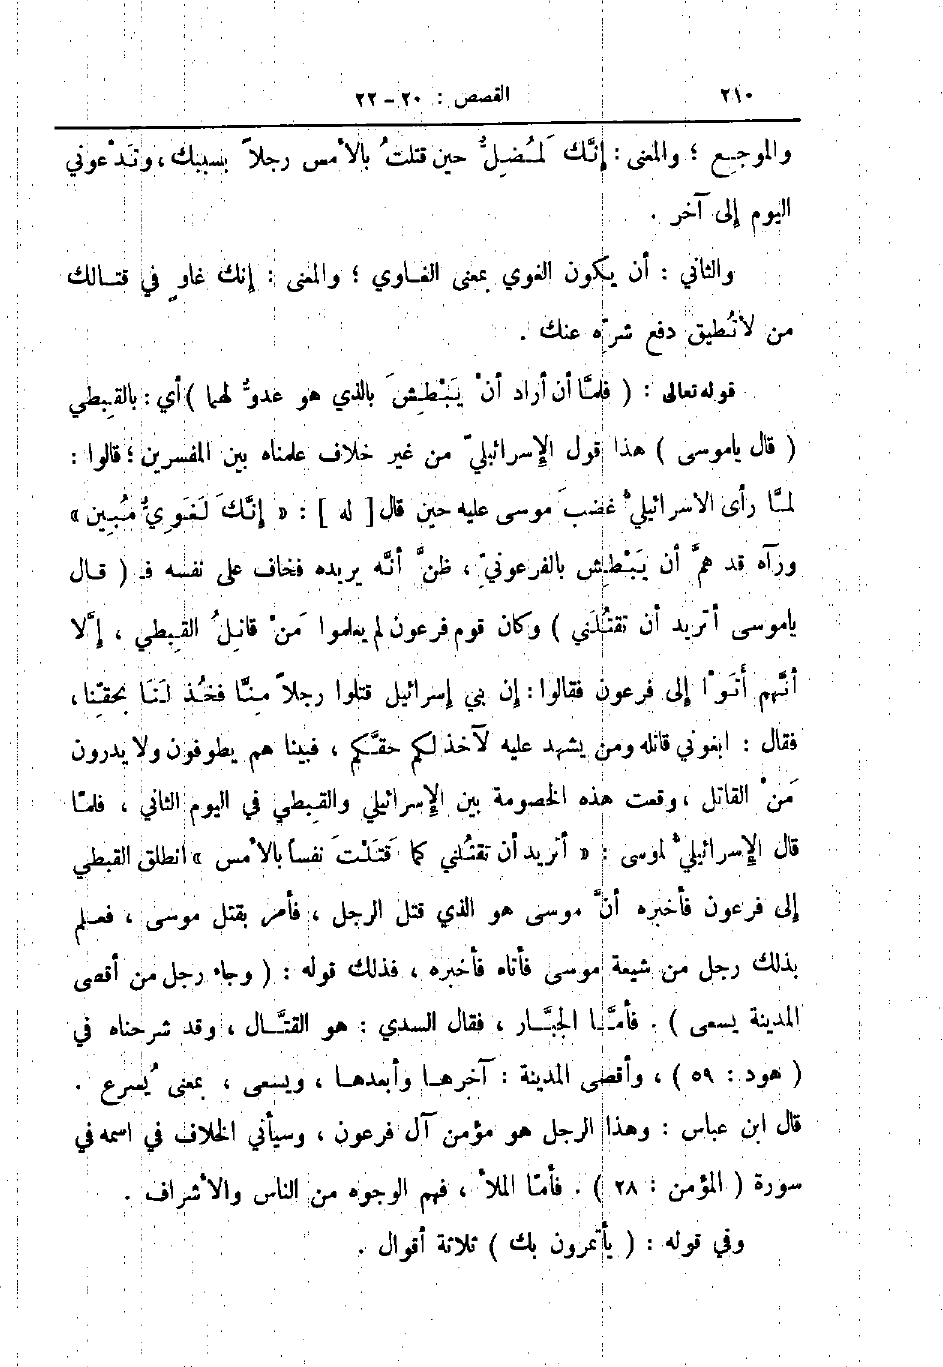 ٢١٠ القصص : ٢٠ – ٢٢
والموجع ؛ والمعنى : إنَّك لَمُضِلٌّ حين قتلتُ بالأمس رجلاً بسببك ، وتَدْعوني
اليوم إلى آخر .
والثاني : أن يكون الغوي بمعنى الغاوي ؛ والمعنى : إنك غاوٍ في قتالك
من لا تُطيق دفع شرِّه عنك .
قوله تعالى : ( فلمَّا أن أراد أنْ يَبْطِشَ بالذي هو عدوٌّ لهما ) أي : بالقبطي
( قال ياموسى ) هذا قول الإسرائيليّ من غير خلاف علمناه بين المفسرين ؛ قالوا :
لمَّا رأى الاسرائيليُّ غضبَ موسى عليه حين قال [ له ] : « إنَّكَ لَغَوِيٌّ مُبِين »
ورآه قد همَّ أن يَبْطِش بالفرعونيِّ ، ظنَّ أنَّه يريده فخاف على نفسه فـ ( قال
ياموسى أتريد أن تقتُلَني ) وكان قوم فرعون لم يعلموا مَنْ قاتِلُ القبطي ، إلَّا
أنَّهم أتَوْا إلى فرعون فقالوا : إن بني إسرائيل قتلوا رجلاً مِنَّا فخُذ لَنَا بحقِّنا ،
فقال : ابغوني قاتله ومن يشهد عليه لآخذ لكم حقَّكم ، فبينا هم يطوفون ولا يدرون
مَنْ القاتل ، وقعت هذه الخصومة بين الإسرائيلي والقبطي في اليوم الثاني ، فلمَّا
قال الإسرائيليُّ لموسى : « أتريد أن تقتُلني كما قَتَلْتَ نفساً بالأمس » انطلق القبطي
إلى فرعون فأخبره أنَّ موسى هو الذي قتل الرجل ، فأمر بقتل موسى ، فعلم
بذلك رجل من شيعة موسى فأتاه فأخبره ، فذلك قوله : ( وجاء رجل من أقصى
المدينة يسعى ) . فأمَّا الجبَّار ، فقال السدي : هو القتَّال ، وقد شرحناه في
( هود : ٥٩ ) ، وأقصى المدينة : آخرها وأبعدها ، ويسعى ، بمعنى يُسرع .
قال ابن عباس : وهذا الرجل هو مؤمن آل فرعون ، وسيأتي الخلاف في اسمه في
سورة ( المؤمن : ٢٨ ) . فأمّا الملأ ، فهم الوجوه من الناس والأشراف .
وفي قوله : ( يأتمرون بك ) ثلاثة أقوال .